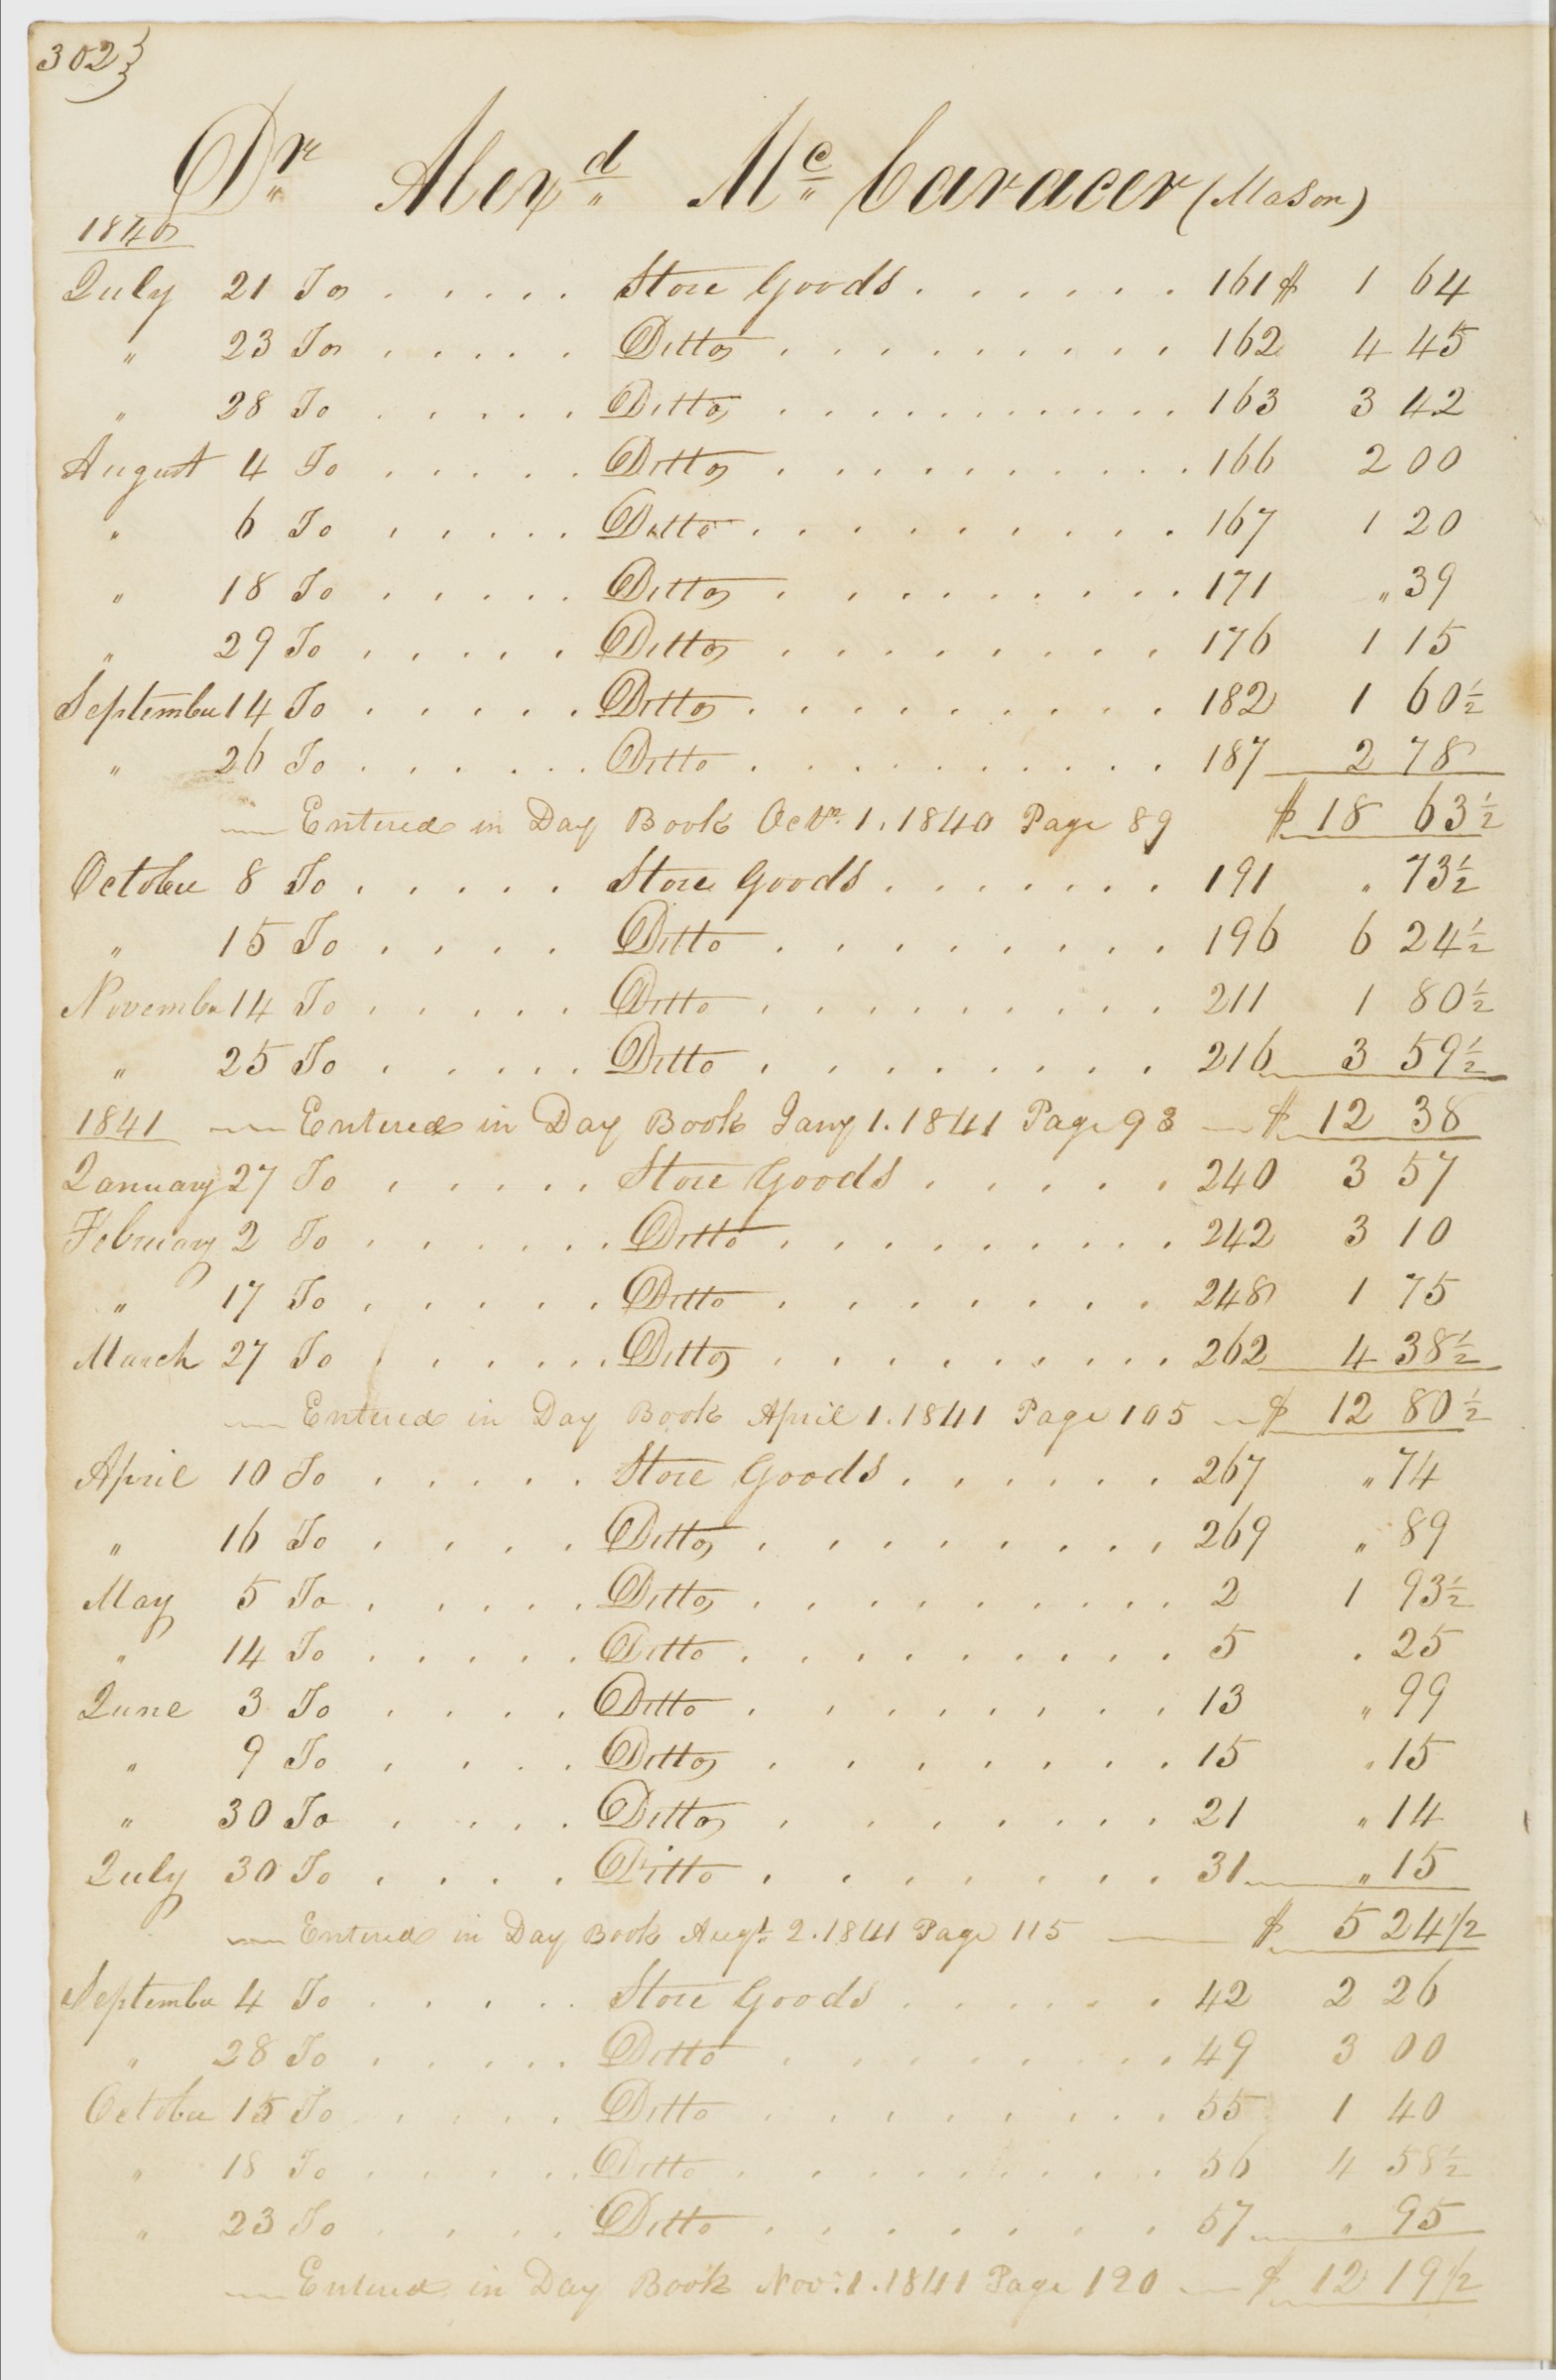 302}
Dr Alexd Mc Caracer (Mason)
1840
July 21 To . . . . . Store Goods . . . . . . 161 $ 1 64
" 23 To . . . . . Ditto . . . . . . . . . 162 4 45
" 28 To . . . . . Ditto . . . . . . . . . . 163 3 42
August 4 To . . . . . Ditto . . . . . . . . . . 166 2 00
" 6 To . . . . . Ditto . . . . . . . . . 167 1 20
" 18 To . . . . . Ditto . . . . . . . . . 171 " 39
" 29 To . . . . . Ditto . . . . . . . . 176 1 15
September 14 To . . . . . Ditto . . . . . . . . . 182 1 60½
" 26 To . . . . . . Ditto . . . . . . . . . 187 2 78
Entered in Day Book Octr. 1. 1840 Page 89 $ 18 63½
October 8 To . . . . . Store Goods . . . . . . . 191 " 73½
" 15 To . . . . Ditto . . . . . . . . 196 6 24½
November 14 To . . . . . Ditto . . . . . . . . . 211 1 80½
" 25 To . . . . . Ditto . . . . . . . . 216 3 59½
1841 Entered in Day Book Jany 1. 1841 Page 93 $ 12 38
January 27 To . . . . . Store Goods . . . . . 240 3 57
February 2 To . . . . . . Ditto . . . . . . . . . 242 3 10
" 17 To . . . . . Ditto . . . . . . . . 248 1 75
March 27 To . . . . . Ditto . . . . . . . . . 262 4 38½
Entered in Day Book April 1. 1841 Page 105 $ 12 80½
April 10 To . . . . . Store Goods . . . . . . 267 " 74
" 16 To . . . . Ditto . . . . . . . . . 269 " 89
May 5 To . . . . . Ditto . . . . . . . . . 2 1 93½
" 14 To . . . . . Ditto . . . . . . . . . 5 . 25
June 3 To . . . . Ditto . . . . . . . . 13 " 99
" 9 To . . . . Ditto . . . . . . . . 15 " 15
" 30 To . . . . Ditto . . . . . . . . 21 " 14
July 30 To . . . . Ditto . . . . . . . . 31 " 15
Entered in Day Book Augt. 2. 1841 Page 115 $ 5 24½
September 4 To . . . . . Store Goods . . . . . 42 2 26
" 28 To . . . . . Ditto . . . . . . . . . 49 3 00
October 15 To . . . . Ditto . . . . . . . . . 55 1 40
" 18 To . . . . . Ditto . . . . . . . . . 56 4 58½
" 23 To . . . . Ditto . . . . . . . . 57 " 95
Entered in Day Book Nov. 1. 1841 Page 120 $ 12 19½